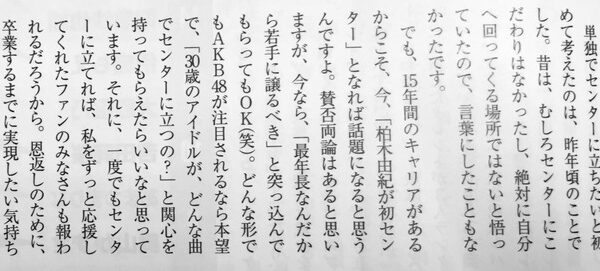 単独でセンターに立ちたいと初
めて考えたのは、昨年頃のことで
した。昔は、むしろセンターにこ
だわりはなかったし、絶対に自分
へ回ってくる場所ではないと悟っ
ていたので、言葉にしたこともな
かったです。
でも、15年間のキャリアがある
からこそ、今、「柏木由紀が初セン
ター」となれば話題になると思う
んですよ。賛否両論はあると思い
ますが、今なら、「最年長なんだか
ら若手に譲るべき」と突っ込んで
もらってもOK(笑)。どんな形で
もAKB48が注目されるなら本望
で、「30歳のアイドルが、どんな曲
でセンターに立つの?」と関心を
持ってもらえたらいいなと思って
います。それに、一度でもセンタ
ーに立てれば、私をずっと応援し
てくれたファンのみなさんも報わ
れるだろうから。恩返しのために、
卒業するまでに実現したい気持ち